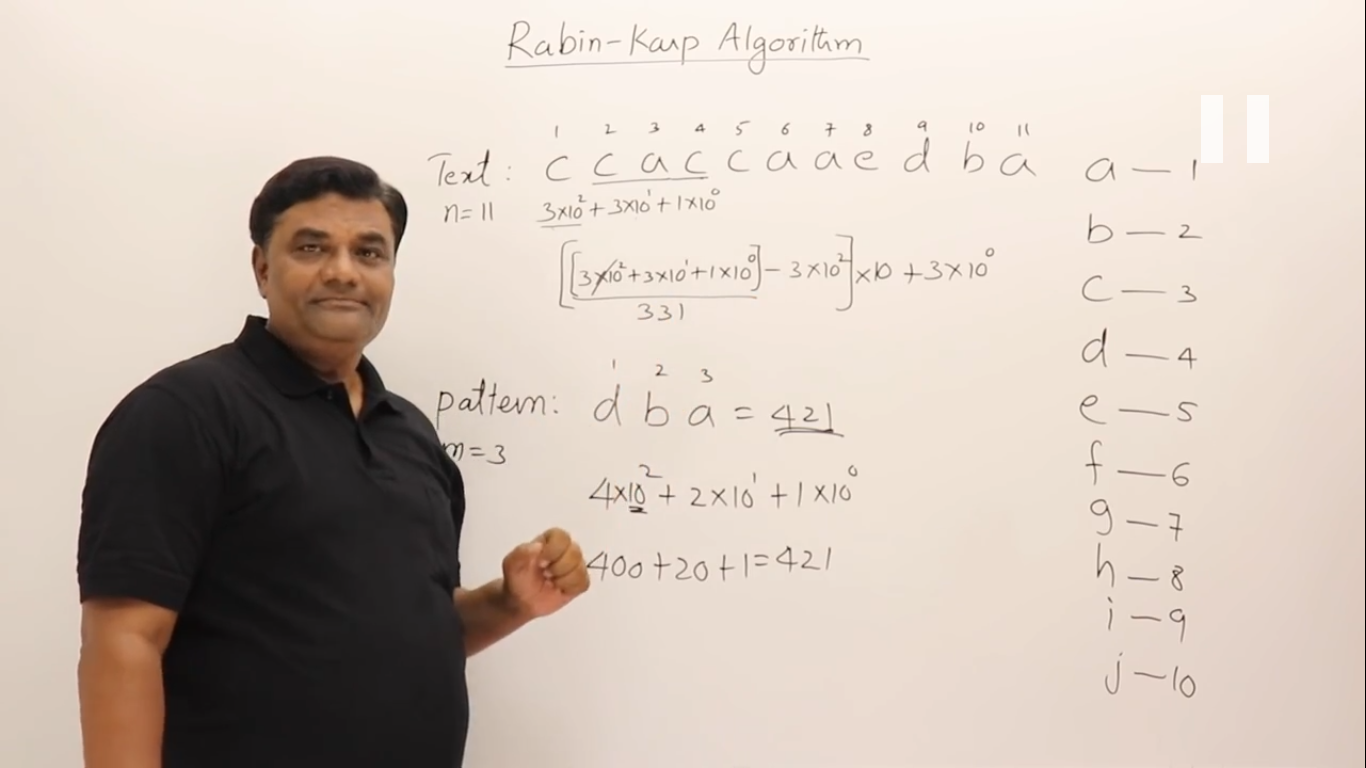 Rabin-Karp Algorithm
1 2 3 4 5 6 7 8 9 10 11
Text: c c a c c a a e d b a
n=11 3×10² + 3×10¹ + 1×10⁰
[[3×10² + 3×10¹ + 1×10⁰] - 3×10²]×10 + 3×10⁰
331
1 2 3
pattern: d b a = 421
m=3
4×10² + 2×10¹ + 1×10⁰
400+20+1=421
a — 1
b — 2
c — 3
d — 4
e — 5
f — 6
g — 7
h — 8
i — 9
j — 10